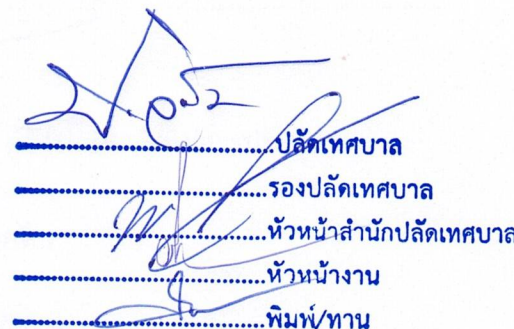 ....................ปลัดเทศบาล
....................รองปลัดเทศบาล
....................หัวหน้าสำนักปลัดเทศบาล
....................หัวหน้างาน
....................พิมพ์/ทาน